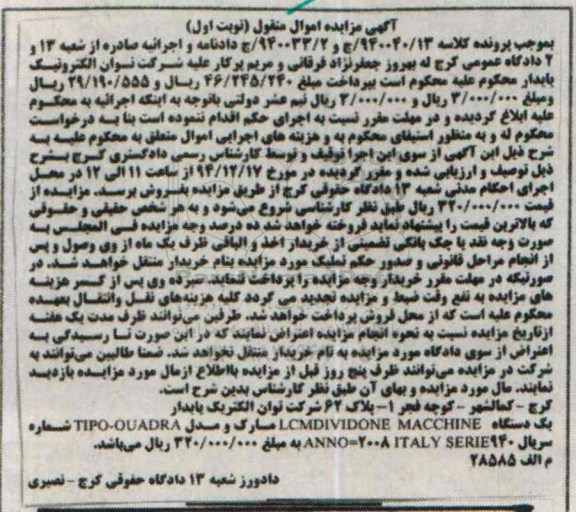 آگهی مزایده اموال منقول (نوبت اول)
بموجب پرونده کلاسه ۹۴۰۰۴۰/۱۳/ج و ۹۴۰۰۳۳/۲/ج دادنامه و اجرائیه صادره از شعبه ۱۳ و
۲ دادگاه عمومی کرج له بهروز جعفرنژاد فرقانی و مریم پرکار علیه شرکت توان الکترونیک
پایدار محکوم علیه محکوم است بپرداخت مبلغ ۴۶/۲۴۵/۲۴۰ ریال و ۲۹/۱۹۰/۵۵۵ ریال
ومبلغ ۳/۰۰۰/۰۰۰ ریال و ۲/۰۰۰/۰۰۰ ریال نیم عشر دولتی باتوجه به اینکه اجرائیه به محکوم
علیه ابلاغ گردیده و در مهلت مقرر نسبت به اجرای حکم اقدام ننموده است بنا به درخواست
محکوم له و به منظور استیفای محکوم به و هزینه های اجرایی اموال متعلق به محکوم علیه به
شرح ذیل این آگهی از سوی این اجرا توقیف و توسط کارشناس رسمی دادگستری کرج بشرح
ذیل توصیف و ارزیابی شده و مقرر گردیده در مورخ ۹۴/۱۲/۱۷ از ساعت ۱۱ الی ۱۲ در محل
اجرای احکام مدنی شعبه ۱۳ دادگاه حقوقی کرج از طریق مزایده بفروش برسد. مزایده از
قیمت ۳۲۰/۰۰۰/۰۰۰ ریال طبق نظر کارشناسی شروع می‌شود و به هر شخص حقیقی و حقوقی
که بالاترین قیمت را پیشنهاد نماید فروخته خواهد شد ده درصد وجه مزایده فی المجلس به
صورت وجه نقد یا چک بانکی تضمینی از خریدار اخذ و الباقی ظرف یک ماه از وی وصول و پس
از انجام مراحل قانونی و صدور حکم تملیک مورد مزایده بنام خریدار منتقل خواهد شد. در
صورتیکه در مهلت مقرر خریدار وجه مزایده را پرداخت ننماید. سپرده وی پس از کسر هزینه
های مزایده به نفع وقت ضبط و مزایده تجدید می گردد کلیه هزینه‌های نقل وانتقال بعهده
محکوم علیه است که از محل فروش پرداخت خواهد شد. طرفین می‌توانند ظرف مدت یک هفته
ازتاریخ مزایده نسبت به نحوه انجام مزایده اعتراض نمایند که در این صورت تا رسیدگی به
اعتراض از سوی دادگاه مورد مزایده به نام خریدار منتقل نخواهد شد. ضمنا طالبین می‌توانند به
شرکت در مزایده می‌توانند ظرف پنج روز قبل از مزایده بااطلاع ازمال مورد مزایده بازدید
نمایند. مال مورد مزایده و بهای آن طبق نظر کارشناس بدین شرح است.
کرج - کمالشهر - کوچه فجر ۱- پلاک ۶۲ شرکت توان الکتریک پایدار
یک دستگاه LCMDIVIDONE MACCHINE مارک و مدل TIPO-OUADRA شماره
سریال ANNO=۲۰۰۸ ITALY SERIE۹۴۰ به مبلغ ۳۲۰/۰۰۰/۰۰۰ ریال می‌باشد.
م الف ۲۸۵۸۵
دادورز شعبه ۱۳ دادگاه حقوقی کرج - نصیری